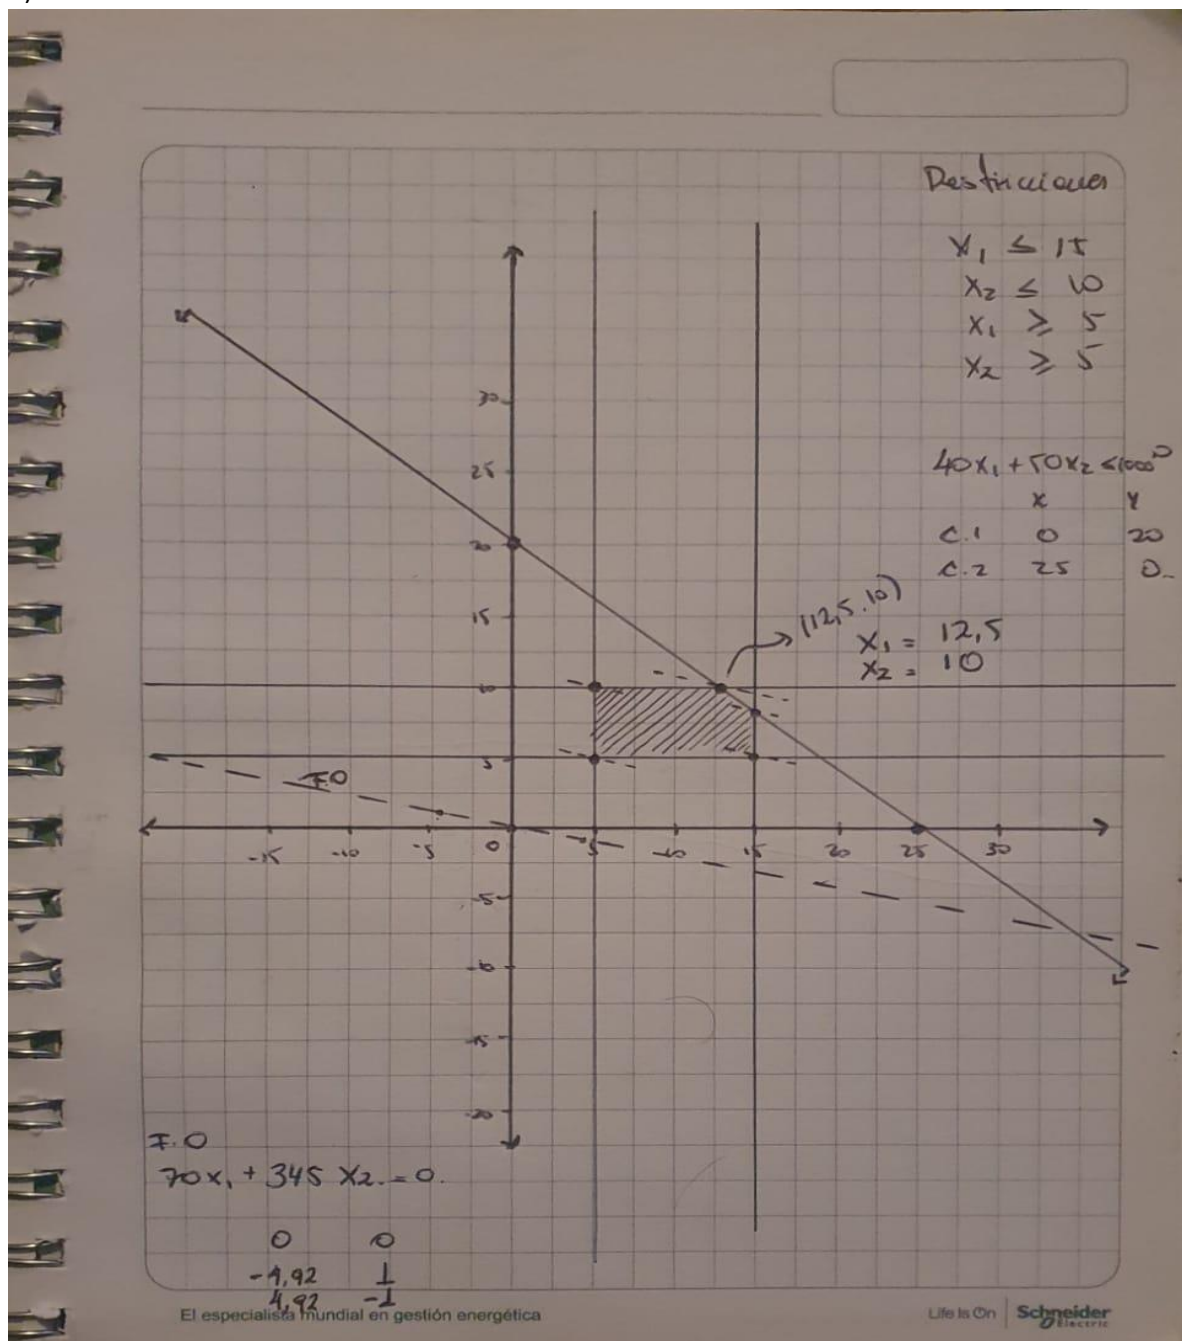 Restricciones
X₁ ≤ 15
X₂ ≤ 10
X₁ ≥ 5
X₂ ≥ 5
40X₁ + 50X₂ ≤ 1000
x y
C.1 0 20
C.2 25 0
30
25
20
15
(12,5.10)
X₁ = 12,5
X₂ = 10
10
5
F.O
-15 -10 -5 0 5 10 15 20 25 30
-5
-10
-15
-20
F.O
70X₁ + 345 X₂ = 0.
0 0
-4,92 1
4,92 -1
El especialista mundial en gestión energética
Life Is On | Schneider
Electric